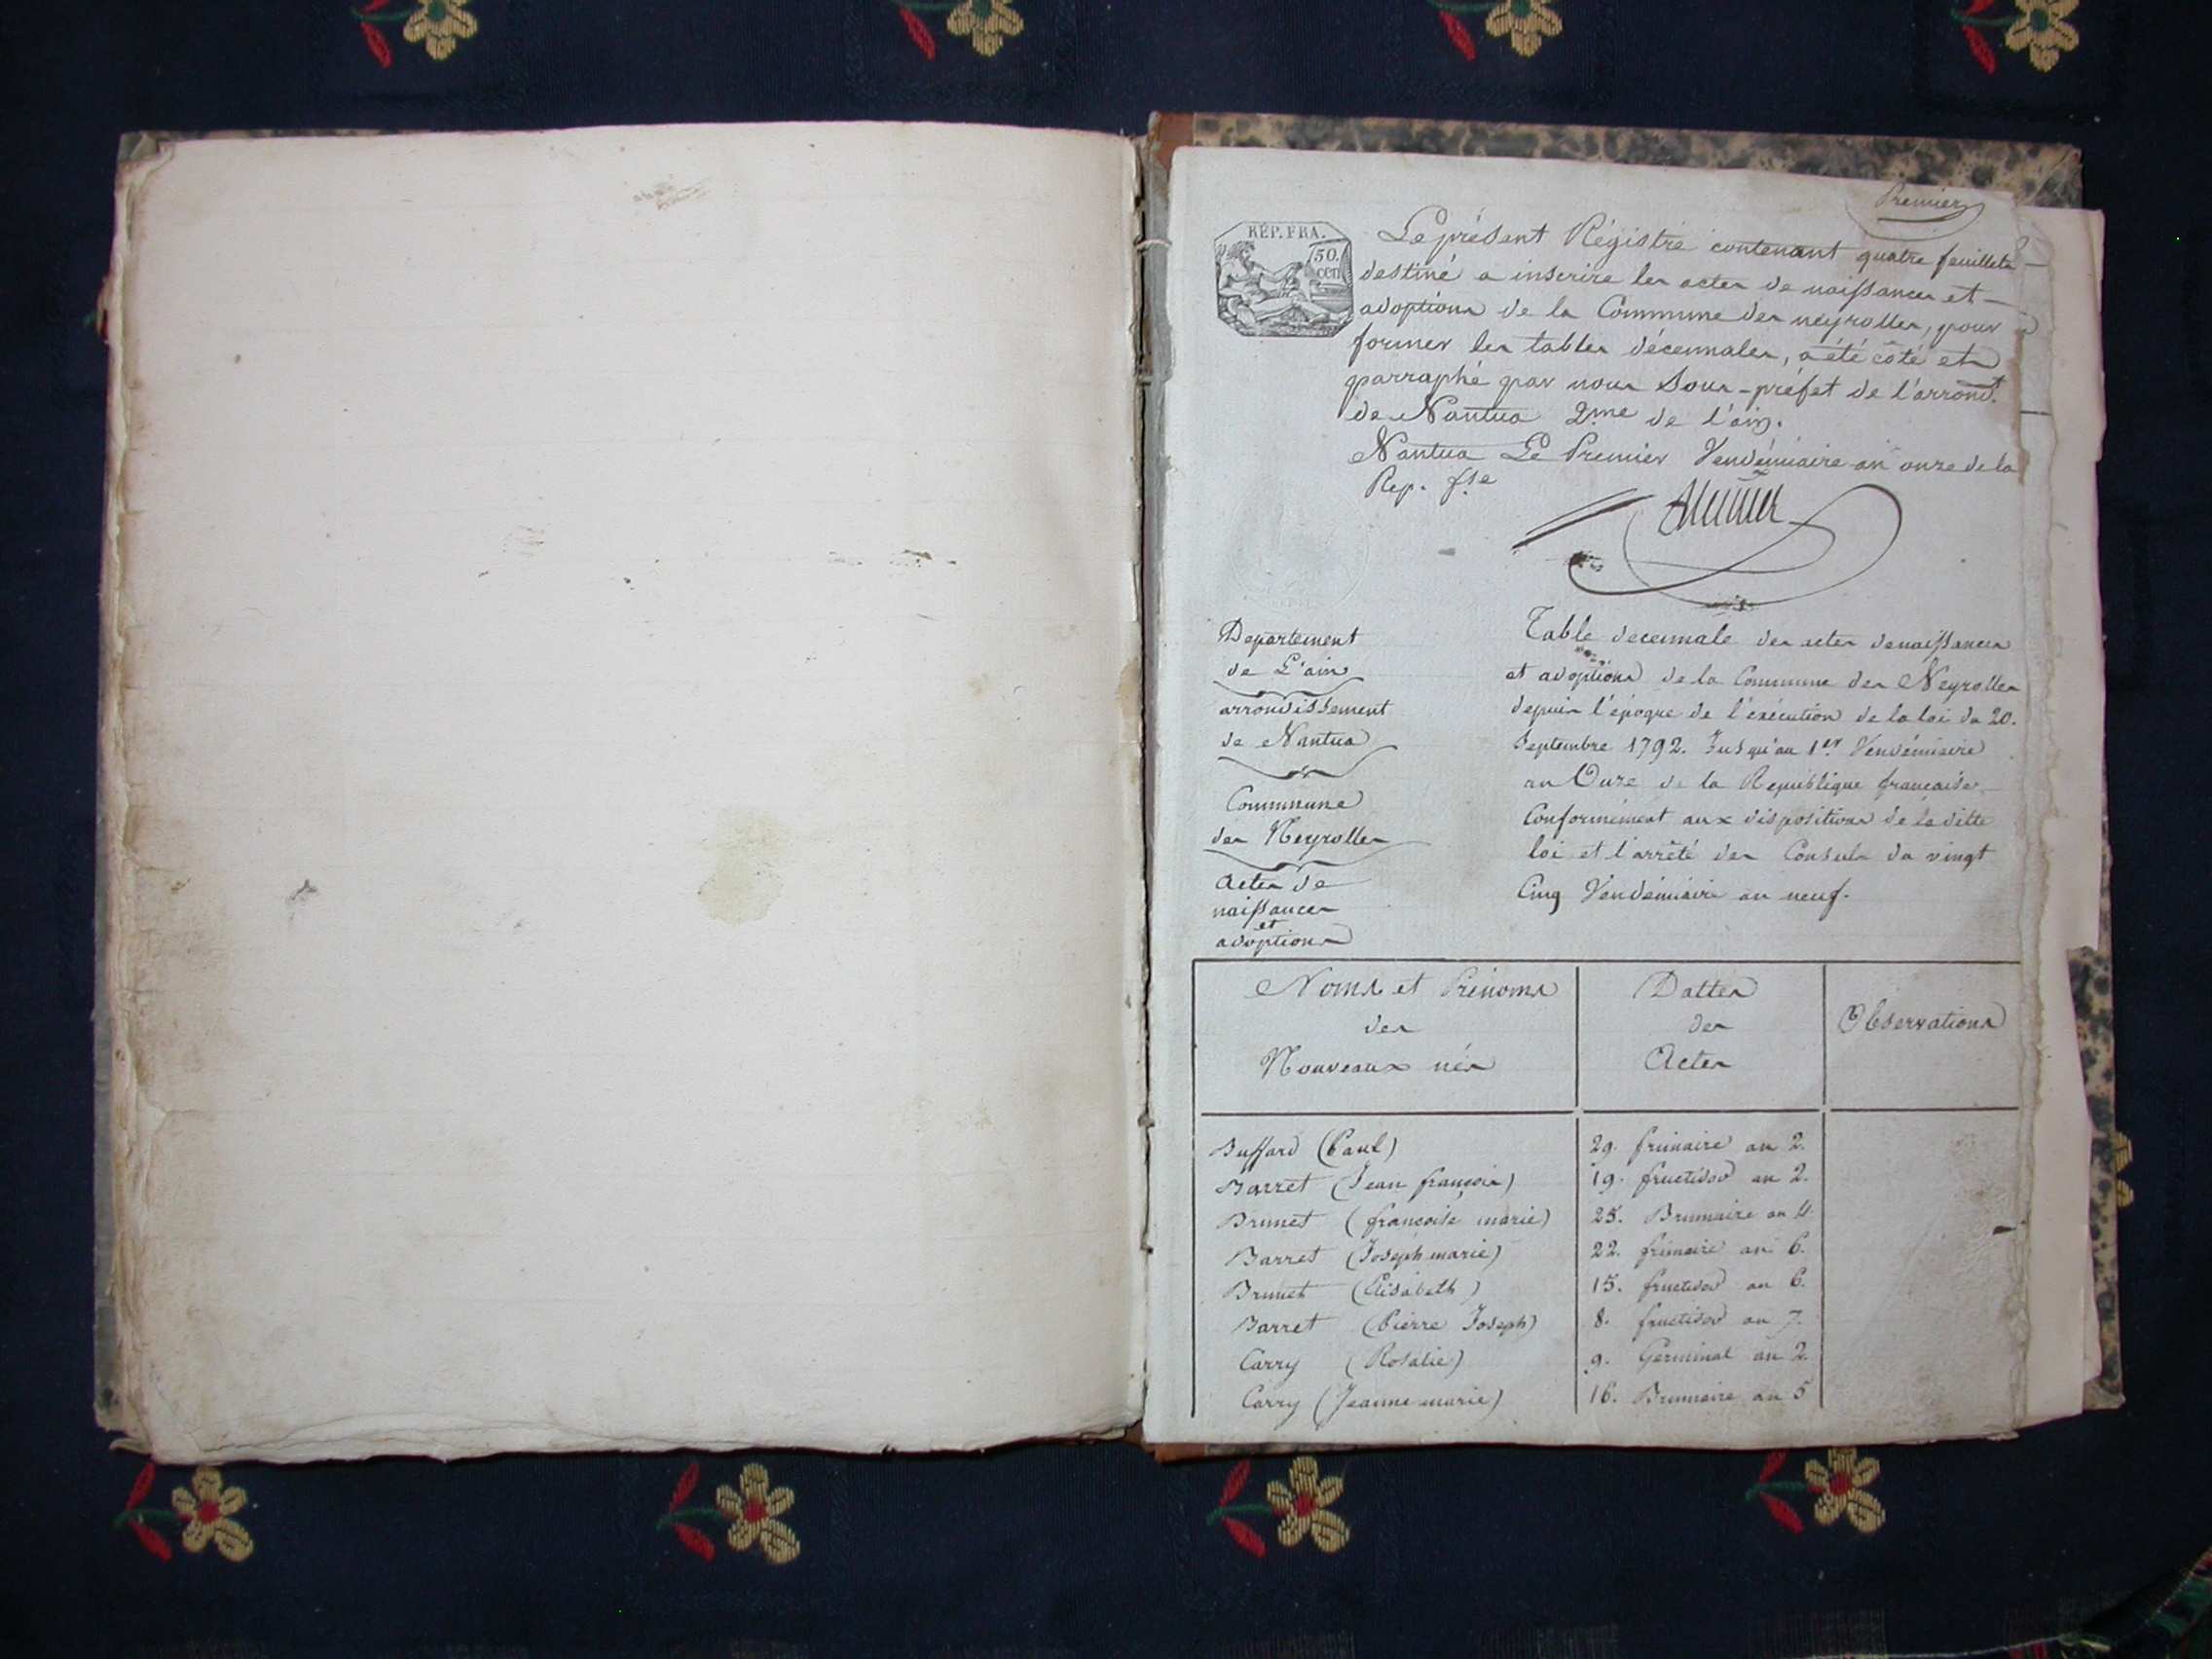 Premier
RÉP. FRA.
50.
cen
Le présent Régistre contenant quatre feuillets
destiné a inscrire les actes de naissances et
adoptions de la Commune des neyrolles, pour
former les tables décennales, a été coté et
parraphé par nous Sous-préfet de l'arrond.t
de Nantua 2.me de l'ain.
Nantua Le Premier Vendémiaire an onze de la
Rep. f.se
Departement
de L'ain
arrondissement
de Nantua
Commune
des Neyrolles
actes de
naissances
et
adoptions
Table decennale des actes denaissances
et adoptions de la Commune des Neyrolles
depuis l'époque de l'exécution de la loi du 20.
Septembre 1792. Jusqu'au 1.er Vendémiaire
an Onze de la Republique francaise
Conformément aux dispositions de la ditte
loi et l'arrêté des Consuls du vingt
Cinq Vendémiaire an neuf.
Noms et Prénoms
des
Nouveaux nés
Dattes
des
Actes
Observations
Buffard (Paul) 29. frimaire an 2.
Barret (Jean françois) 19. fructidor an 2.
Brunet (françoise marie) 25. Brumaire an 4.
Barret (Joseph marie) 22. frimaire an 6.
Brunet (Elisabeth) 15. fructidor an 6.
Barret (Pierre Joseph) 8. fructidor an 7.
Carry (Rosalie) 9. Germinal an 2.
Carry (Jeanne marie) 16. Brumaire an 5